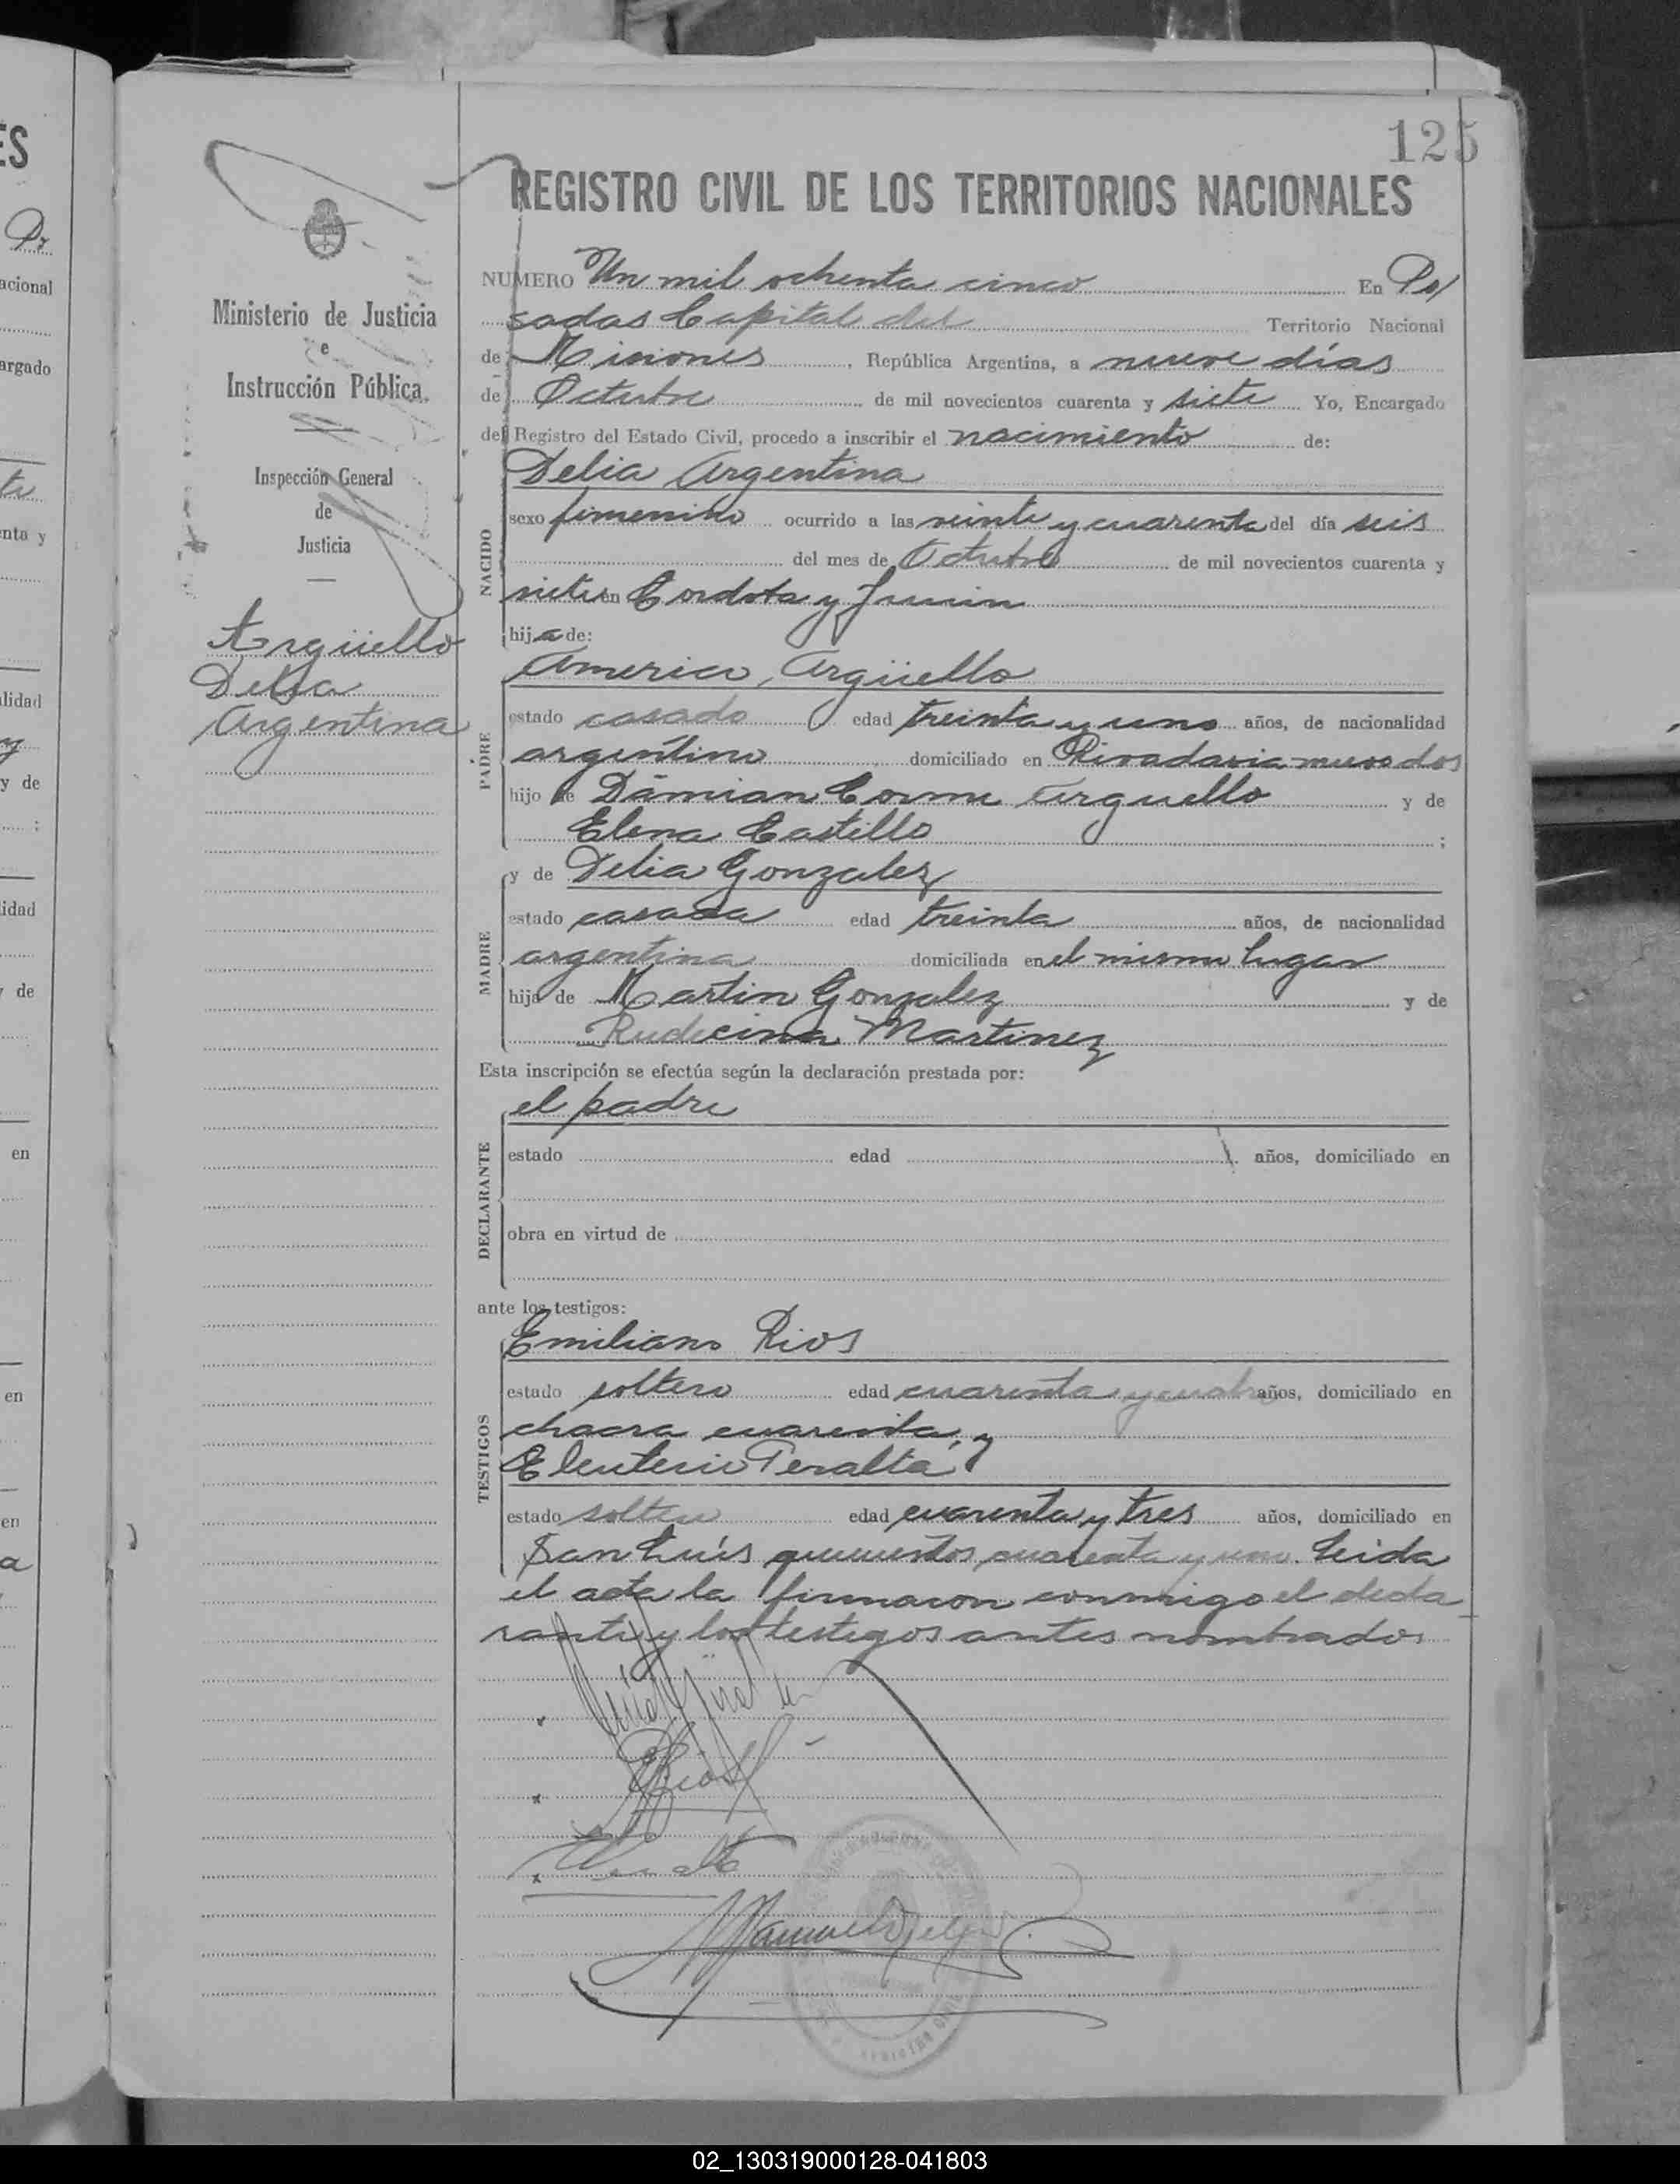 125
REGISTRO CIVIL DE LOS TERRITORIOS NACIONALES
Ministerio de Justicia
e
Instrucción Pública.
Inspección General
de
Justicia
Argüello
Delia
Argentina
NUMERO Un mil ochenta cinco En Po/
sadas Capital del Territorio Nacional
de Misiones, República Argentina, a nueve días
de Octubre de mil novecientos cuarenta y siete Yo, Encargado
del Registro del Estado Civil, procedo a inscribir el nacimiento de:
NACIDO
Delia Argentina
sexo femenino ocurrido a las veinte y cuarenta del día seis
del mes de Octubre de mil novecientos cuarenta y
siete en Cordoba y Junin
hija de:
PADRE
Americo, Argüello
estado casado edad treinta y uno años, de nacionalidad
argentino domiciliado en Rivadavia nueve dos
hijo de Damian Cosme Arguello y de
Elena Castillo ;
MADRE
y de Delia Gonzalez
estado casada edad treinta años, de nacionalidad
argentina domiciliada en el mismo lugar
hija de Martin Gonzalez y de
Rudecina Martinez
Esta inscripción se efectúa según la declaración prestada por:
DECLARANTE
el padre
estado edad años, domiciliado en
obra en virtud de
ante los testigos:
TESTIGOS
Emiliano Rios
estado soltero edad cuarenta y cuatro años, domiciliado en
chacra cuarenta, y
Eleuterio Peralta
estado soltero edad cuarenta y tres años, domiciliado en
San Luís quinientos cuarenta y uno. Leida
el acta la firmaron conmigo el decla
rante y los testigos antes nombrados
02_130319000128-041803